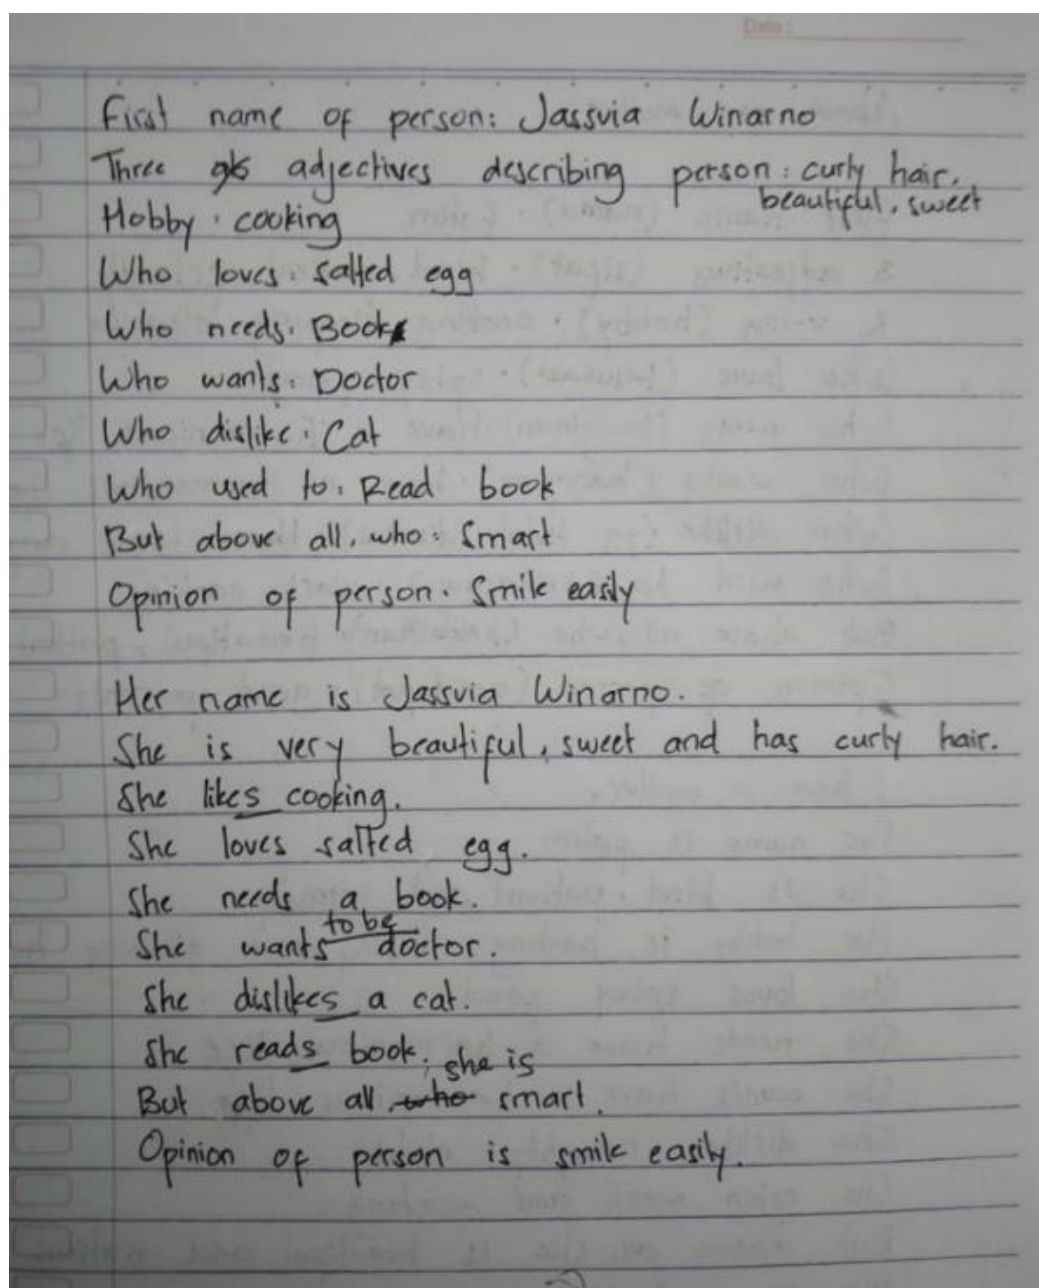 Date:
First name of person: Jassvia Winarno
Three adjectives describing person: curly hair.
beautiful, sweet
Hobby: cooking
Who loves: salted egg
Who needs: Book
Who wants: Doctor
Who dislike: Cat
Who used to: Read book
But above all, who: Smart
Opinion of person: Smile easily
Her name is Jassvia Winarno.
She is very beautiful, sweet and has curly hair.
She likes cooking.
She loves salted egg.
She needs a book.
She wants to be doctor.
She dislikes a cat.
She reads book.
But above all, who she is smart.
Opinion of person is smile easily.